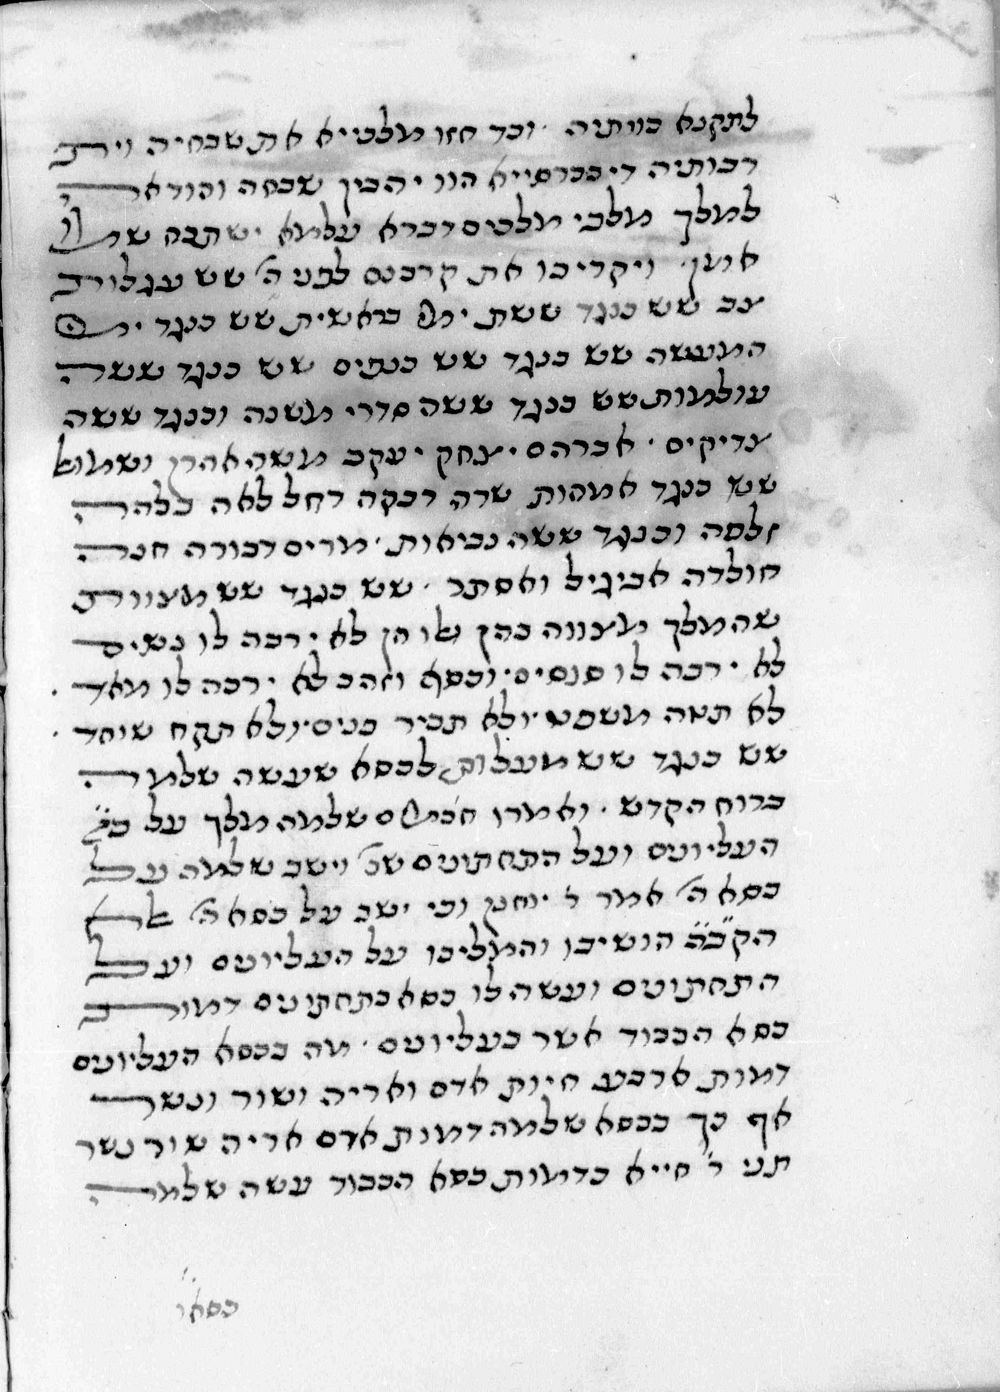 לתקנא כוותיה · וכד חזו מלכייא את שבחיה וית
רבותיה דיככרסייא הוו יהבין שבחה והודאה
למלך מלכי מלכים דברא עלמא ישתבח שמו
אמן · ויקריבו את קרבנם לפני ה׳ שש עגלות
צב שש כנגד ששת ימי בראשית שש כנגד ימי
המעשה שש כנגד שש כנפים שש כנגד ששה
עולמות שש כנגד ששה סדרי משנה וכנגד ששה
צדיקים · אברהם יצחק יעקב משה אהרן ושמואל
שש כנגד אמהות שרה רבקה רחל לאה בלהה
זלפה וכנגד ששה נביאות · מרים דבורה חנה
חולדה אביגיל ואסתר · שש כנגד שש מצוות
שהמלך מצווה בהן אלו הן לא ירבה לו נשים
לא ירבה לו סוסים · וכסף וזהב לא ירבה לו מאד ·
לא תטה משפט · ולא תכיר פנים · ולא תקח שוחד ·
שש כנגד שש מעלות לכסא שעשה שלמה
ברוח הקדש · ואמרו חכמים שלמה מלך על
העליונים ועל התחתונים שנ׳ וישב שלמה על
כסא ה׳ אמר ר׳ יוחנן וכי ישב על כסא ה׳ אלא
הקב״ה הושיבו והמליכו על העליונים ועל
התחתונים ועשה לו כסא בתחתונים דמות
כסא הכבוד אשר בעליונים · מה בכסא העליונים
דמות ארבע חיות אדם ואריה ושור ונשר
אף כך בכסא שלמה דמות אדם אריה שור נשר
תני ר׳ חייא כדמות כסא הכבוד עשה שלמה
כסאו